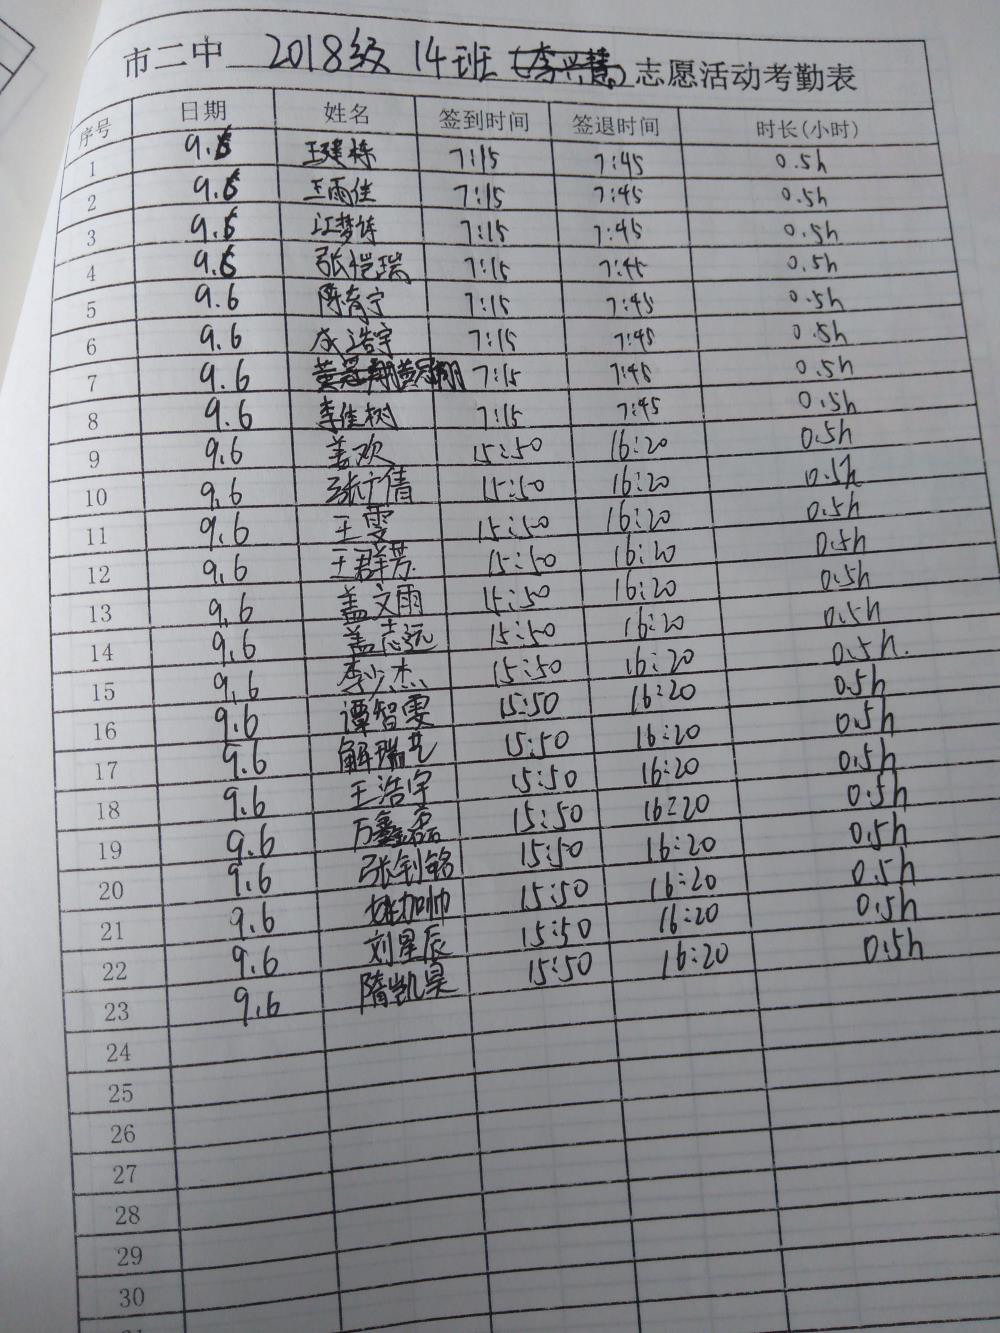 市二中 2018级 14班 (李兴慧) 志愿活动考勤表
序号 日期 姓名 签到时间 签退时间 时长(小时)
1 9.6 王建栋 7:15 7:45 0.5h
2 9.6 王雨佳 7:15 7:45 0.5h
3 9.6 江梦婷 7:15 7:45 0.5h
4 9.6 张恺瑞 7:15 7:45 0.5h
5 9.6 陈育宁 7:15 7:45 0.5h
6 9.6 成浩宇 7:15 7:45 0.5h
7 9.6 黄冠翔 7:15 7:45 0.5h
8 9.6 李佳树 7:15 7:45 0.5h
9 9.6 盖欢 15:50 16:20 0.5h
10 9.6 张广倩 15:50 16:20 0.5h
11 9.6 王雯 15:50 16:20 0.5h
12 9.6 王群芳 15:50 16:20 0.5h
13 9.6 盖文雨 15:50 16:20 0.5h
14 9.6 盖志远 15:50 16:20 0.5h
15 9.6 李少杰 15:50 16:20 0.5h.
16 9.6 谭智雯 15:50 16:20 0.5h
17 9.6 解瑞 15:50 16:20 0.5h
18 9.6 王浩宇 15:50 16:20 0.5h
19 9.6 万鑫磊 15:50 16:20 0.5h
20 9.6 张钊铭 15:50 16:20 0.5h
21 9.6 姚加帅 15:50 16:20 0.5h
22 9.6 刘星辰 15:50 16:20 0.5h
23 9.6 隋凯昊 15:50 16:20 0.5h
24
25
26
27
28
29
30